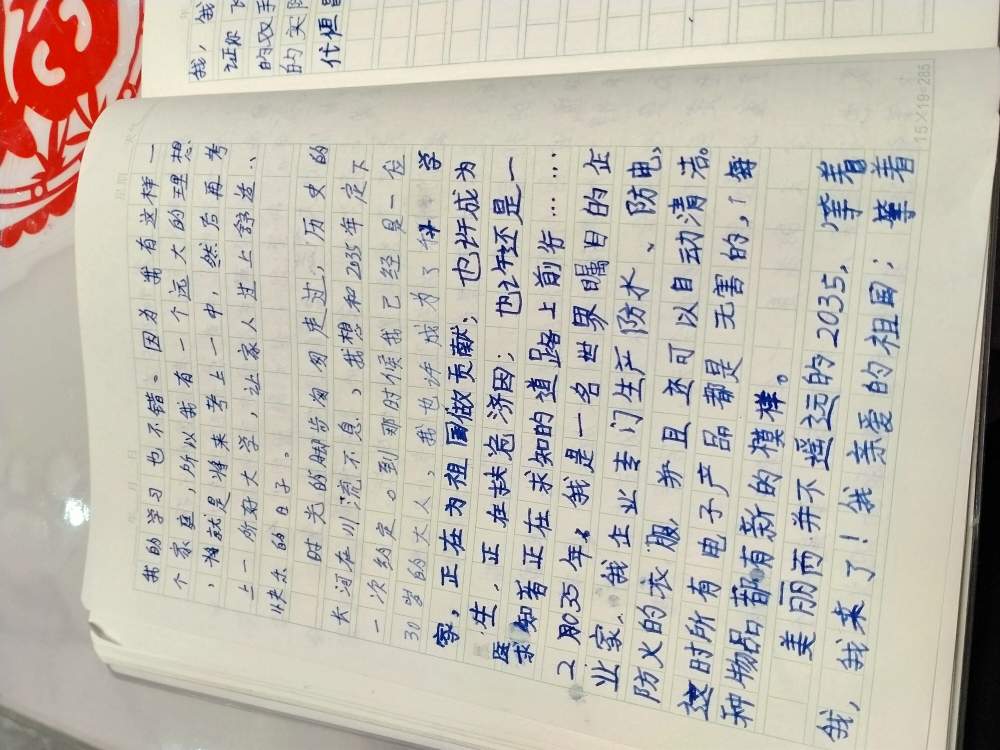 我，我
证你
的双手
的实际
代但
15×19=285
我的学习也不错。因为我有这样一
个家庭，所以我有一个远大的理想
，那就是将来考上一中，然后再考
上一所好大学，让家人过上舒适、
快乐的日子。
时光的脚步匆匆走过，历史的
长河在川流不息，我想和2035年定下
一次约定。到那时候我已经是一位
30岁的大人，我也许成为了科学
家，正在为祖国做贡献；也许成为
医生，正在扶危济困；也许还是一
求知者正在求知的道路上前行……
2035年，我是一名世界瞩目的企
业家，我企业专门生产防水、防电、
防火的衣服，并且还可以自动清洁。
这时所有电子产品都是无害的，每
种物品都有新的模样。
美丽而并不遥远的2035，等着
我，我来了！我亲爱的祖国，等着